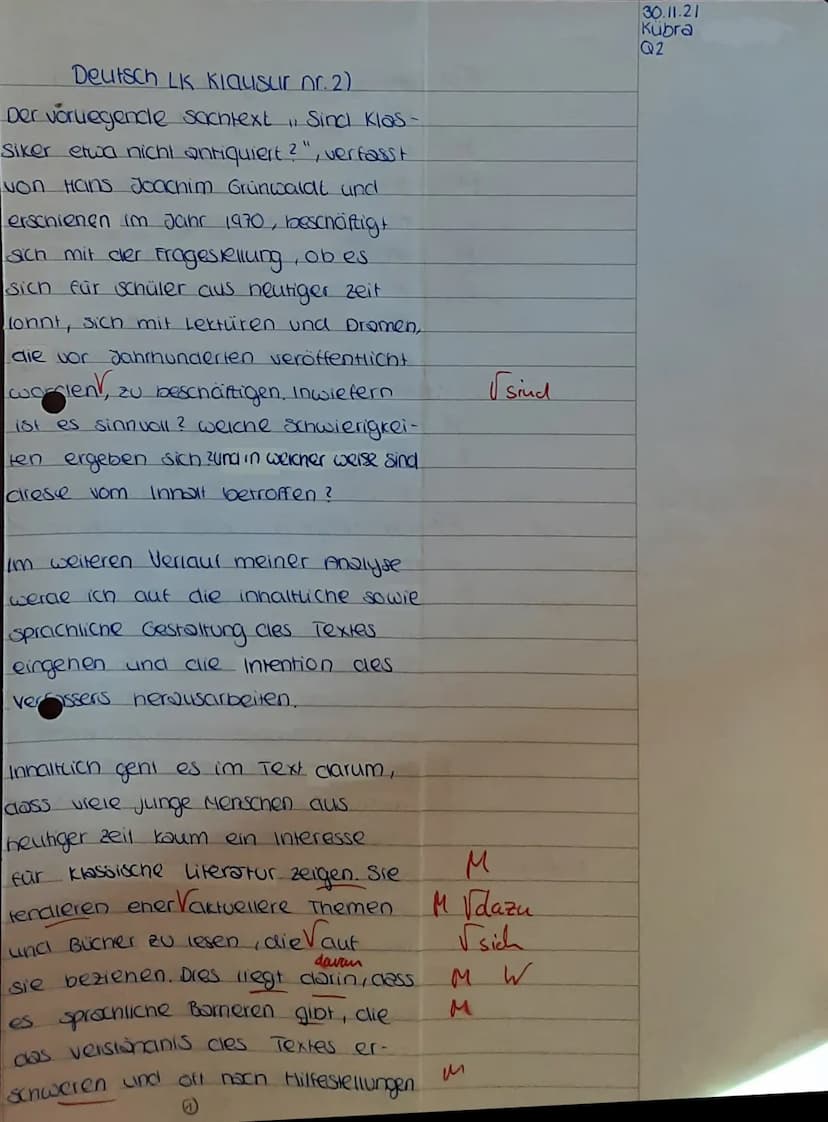 30.11.21
Kübra
Q2
Deutsch LK Klausur nr. 2)
Der vorliegende Sachtext „Sind Klas-
siker etwa nicht antiquiert?", verfasst
von Hans Joachim Grünwaldt und
erschienen im Jahr 1970, beschäftigt
sich mit der Fragestellung, ob es
sich für Schüler aus heutiger Zeit
lohnt, sich mit Lektüren und Dramen,
die vor Jahrhunderten veröffentlicht
worden√, zu beschäftigen. Inwiefern √sind
ist es sinnvoll? Welche Schwierigkei-
ten ergeben sich? Und in welcher Weise sind
diese vom Inhalt betroffen?
Im weiteren Verlauf meiner Analyse
werde ich auf die inhaltliche sowie
sprachliche Gestaltung des Textes
eingehen und die Intention des
Verfassers herausarbeiten.
Inhaltlich geht es im Text darum,
dass viele junge Menschen aus
heutiger Zeit kaum ein Interesse
für klassische Literatur zeigen. Sie M
tendieren eher√aktuellere Themen M √dazu
und Bücher zu lesen, die√auf √sich
daran
sie beziehen. Dies liegt darin, dass M W
es sprachliche Barrieren gibt, die M
das Verständnis des Textes er-
schweren und oft nach Hilfestellungen M
1